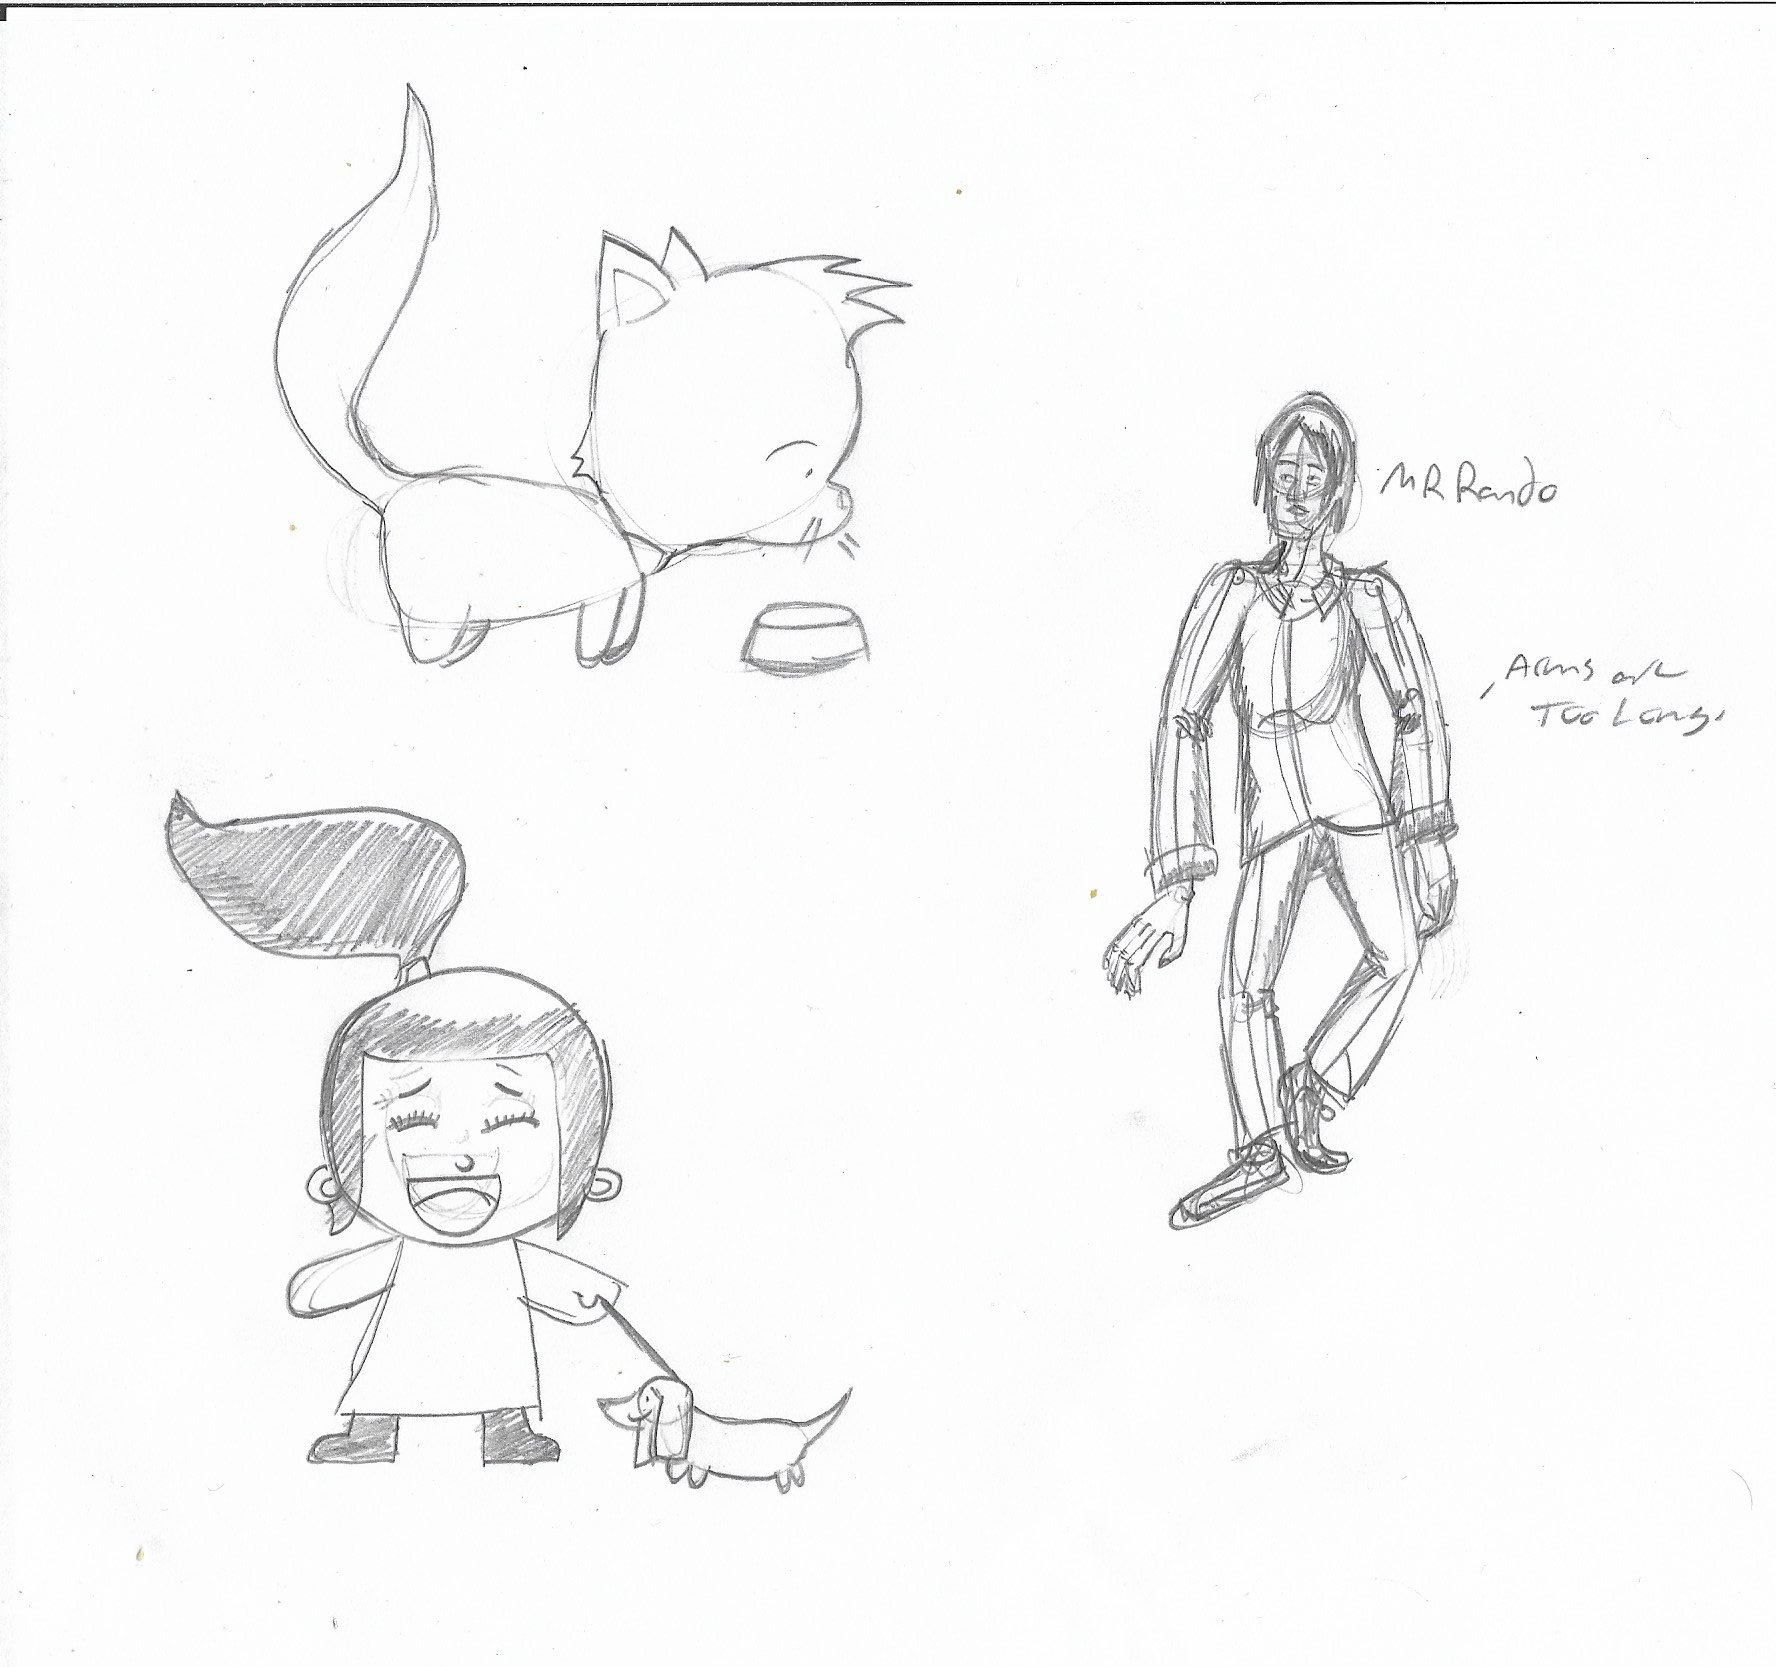 MR Rando
Arms are
Too Long.